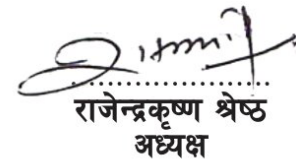 ......................
राजेन्द्रकृष्ण श्रेष्ठ
अध्यक्ष